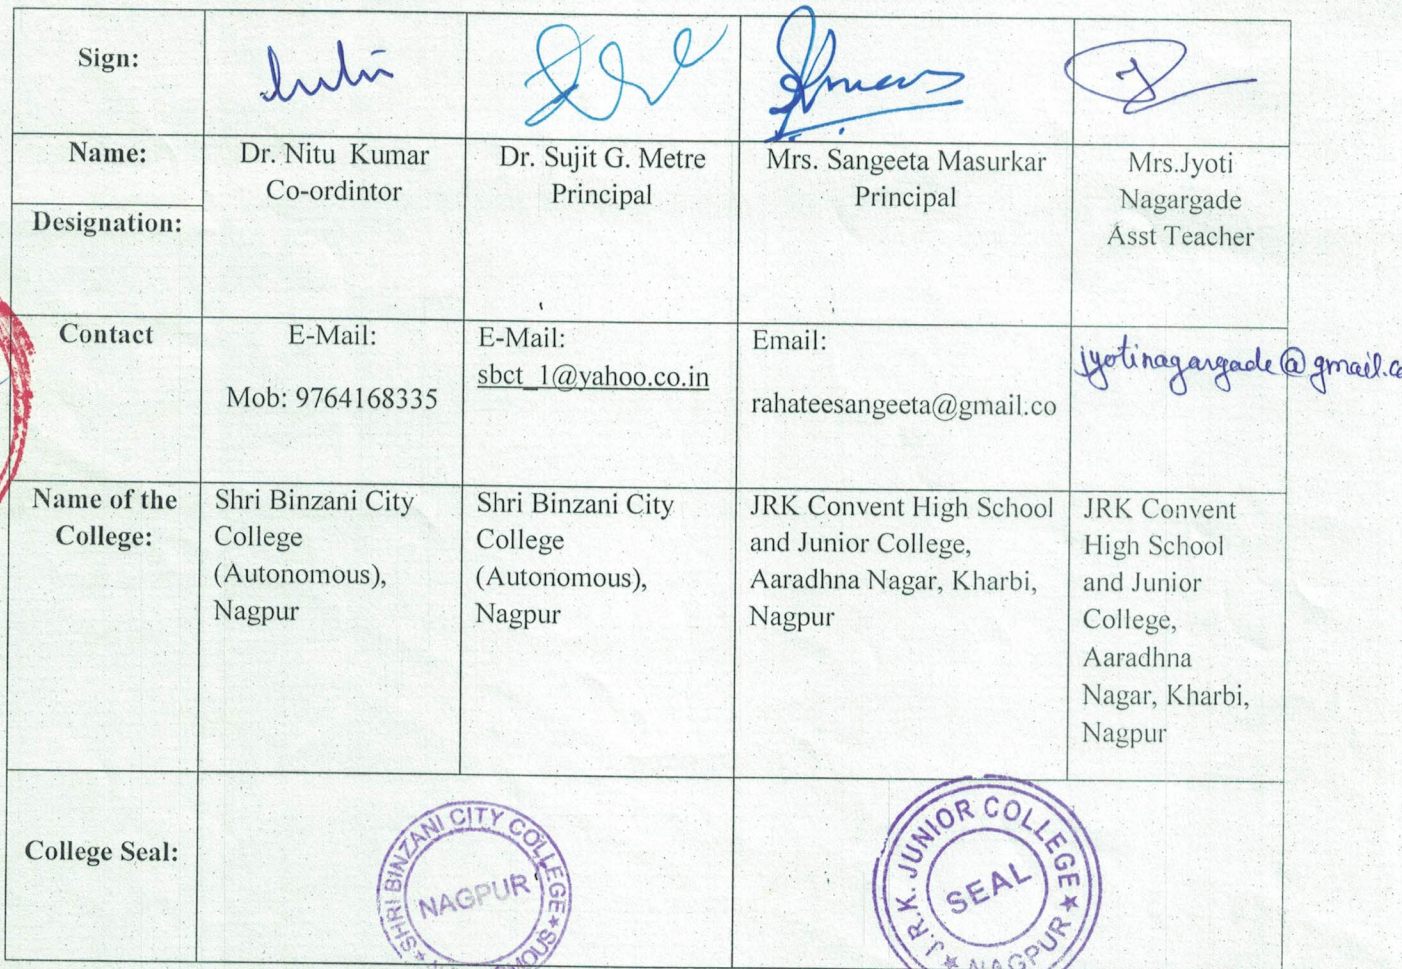 Sign:
Name:
Dr. Nitu Kumar
Co-ordintor
Dr. Sujit G. Metre
Principal
Mrs. Sangeeta Masurkar
Principal
Mrs.Jyoti
Nagargade
Asst Teacher
Designation:
Contact
E-Mail:
Mob: 9764168335
E-Mail:
sbct_1@yahoo.co.in
Email:
rahateesangeeta@gmail.co
jyotinagargade@gmail.co
Name of the
College:
Shri Binzani City
College
(Autonomous),
Nagpur
Shri Binzani City
College
(Autonomous),
Nagpur
JRK Convent High School
and Junior College,
Aaradhna Nagar, Kharbi,
Nagpur
JRK Convent
High School
and Junior
College,
Aaradhna
Nagar, Kharbi,
Nagpur
College Seal:
SHRI BINZANI CITY COLLEGE
NAGPUR
J.R.K. JUNIOR COLLEGE
SEAL
NAGPUR